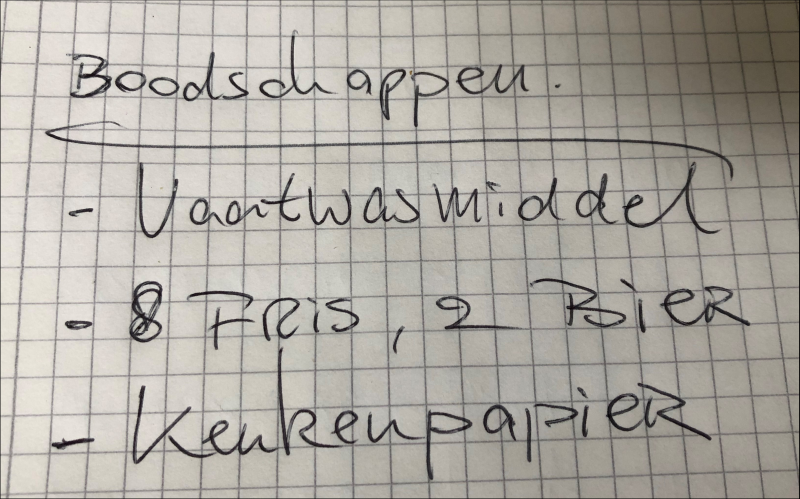 Boodschappen.
- Vaatwasmiddel
- 8 FRis, 2 BieR
- KeukenpapieR